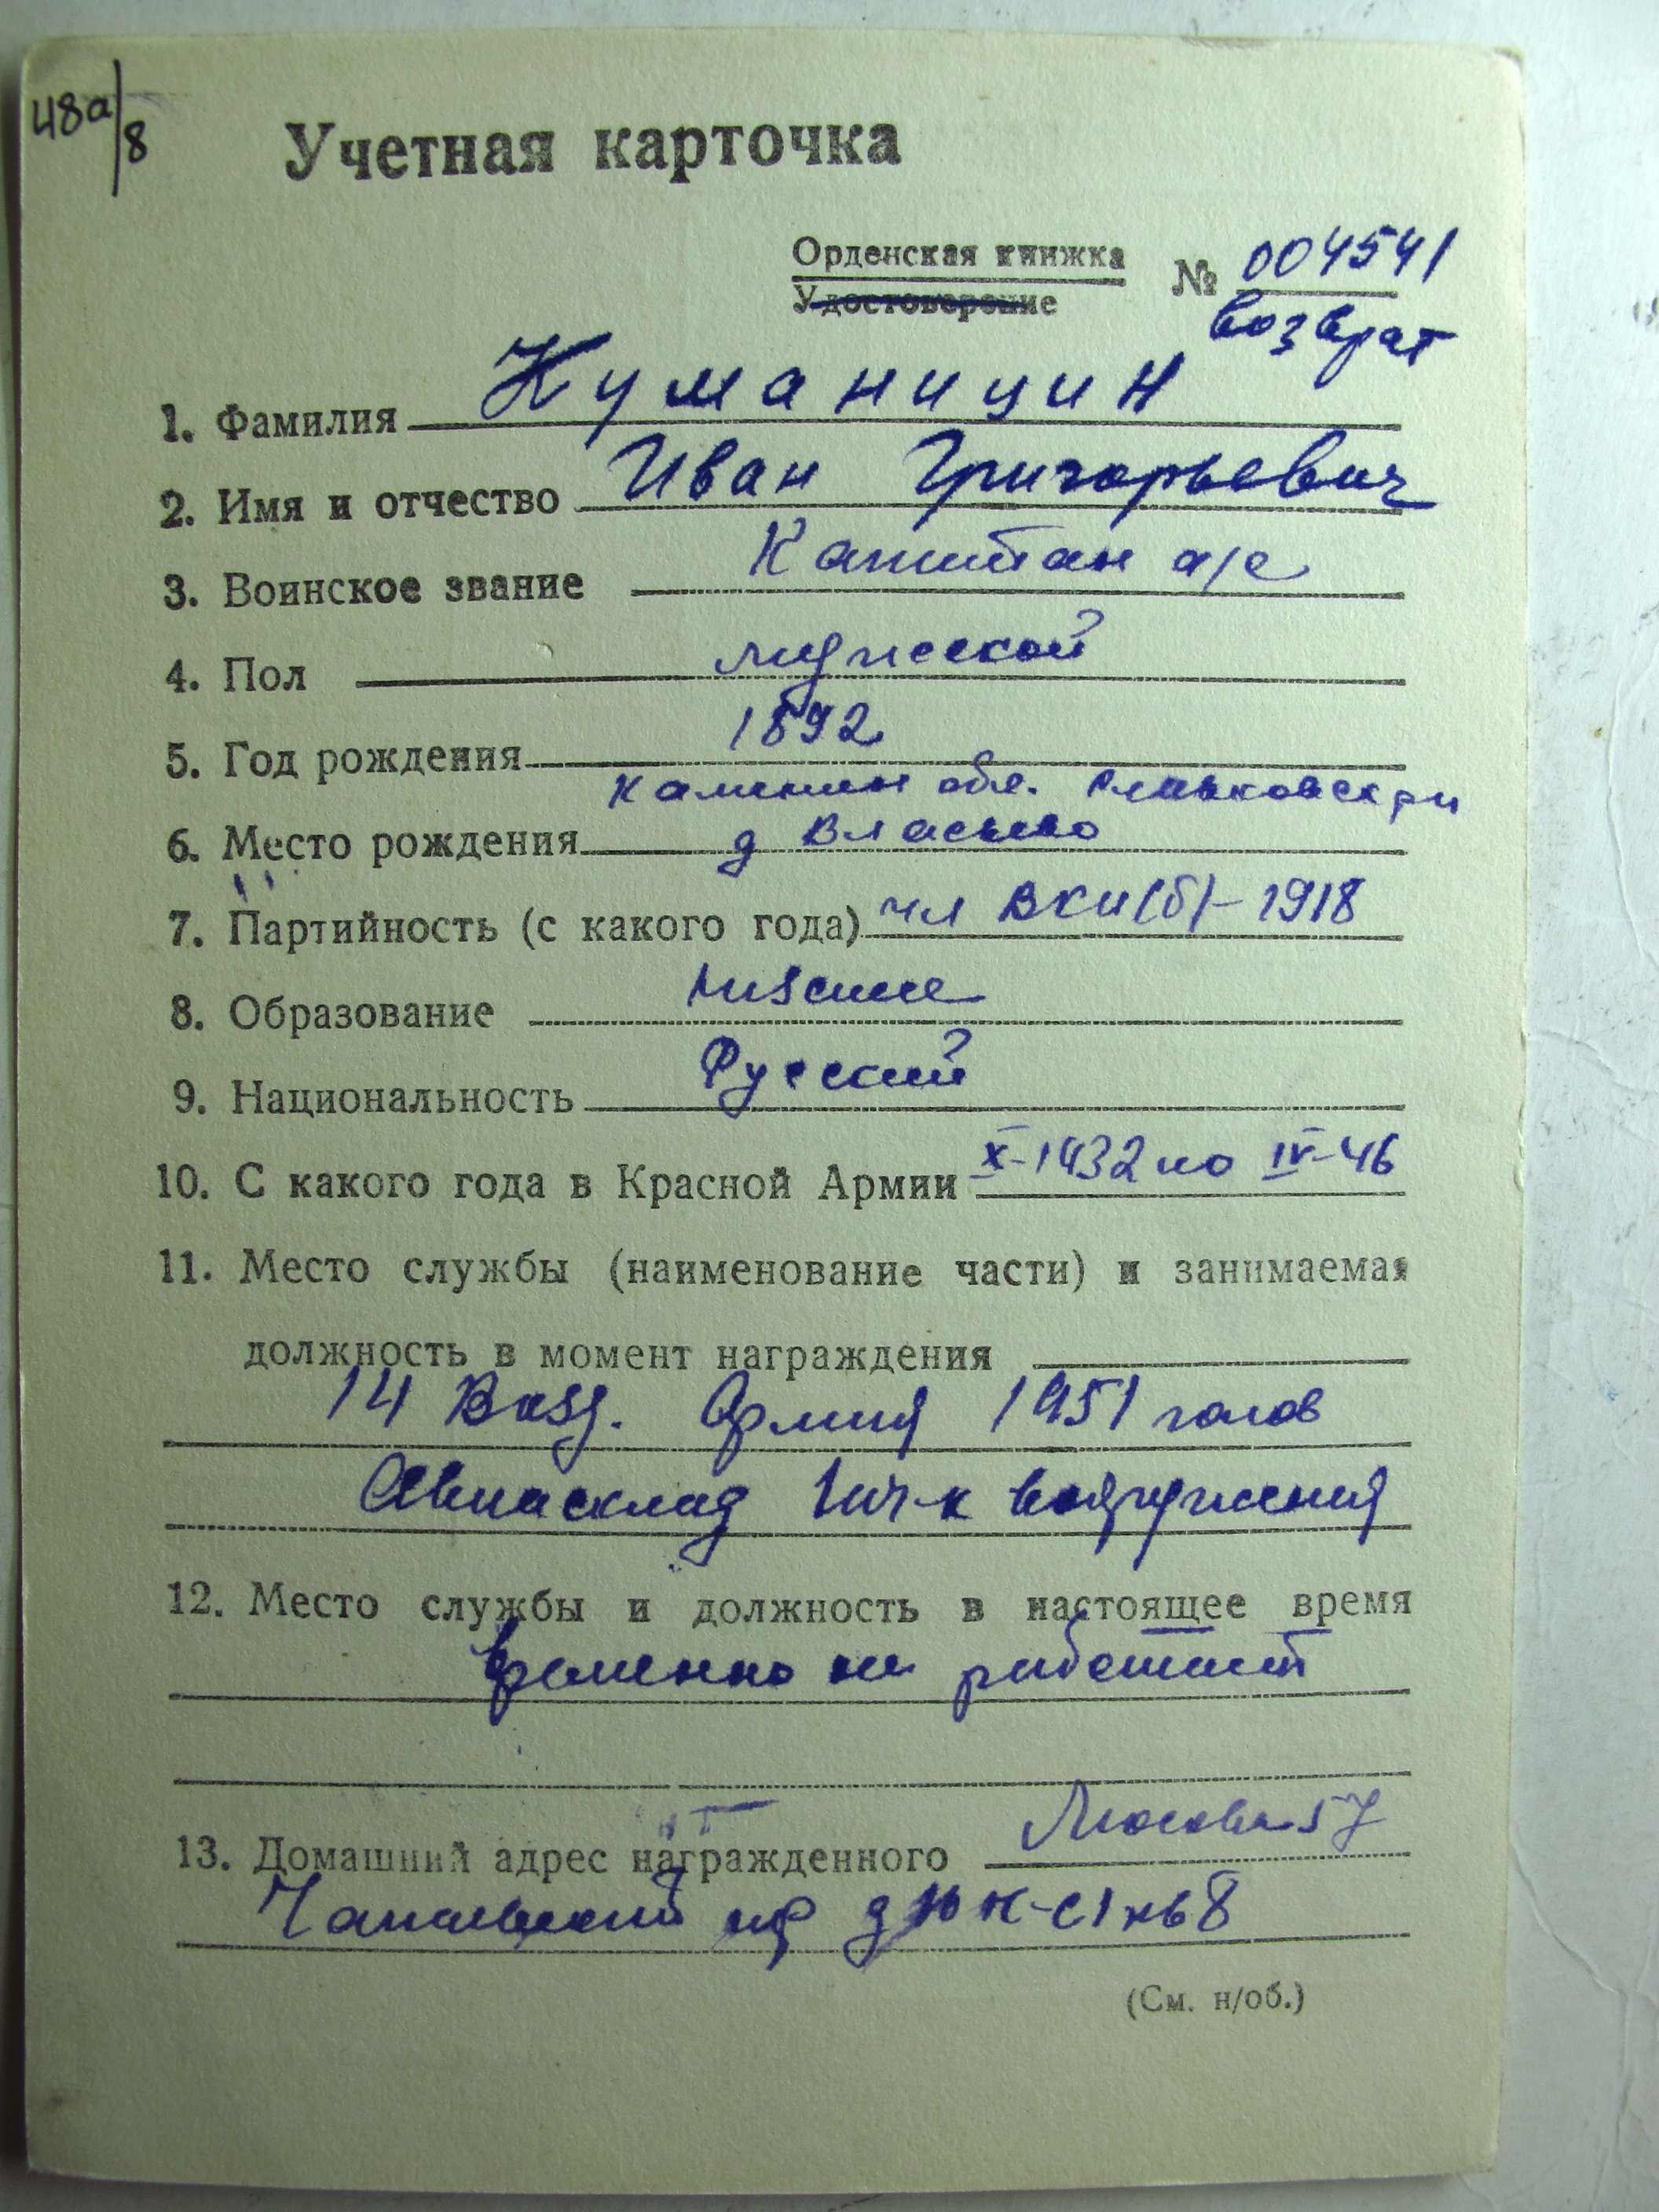 48а/8
Учетная карточка
Орденская книжка № 004541
Удостоверение возврат
1. Фамилия Куманицин
2. Имя и отчество Иван Григорьевич
3. Воинское звание Капитан а/с
4. Пол мужской
5. Год рождения 1892
Калинин обл.
6. Место рождения д Власьево
7. Партийность (с какого года) чл ВКП(б) - 1918
8. Образование Низшее
9. Национальность Русский
10. С какого года в Красной Армии X-1932 по IV-46
11. Место службы (наименование части) и занимаемая
должность в момент награждения
14 Возд. Армия 1951 голов
Авиасклад Нач-к вооружения
12. Место службы и должность в настоящее время
временно не работает
13. Домашний адрес награжденного Москва 57
Чапаевский пр д 10 к-с1 кв 8
(См. н/об.)